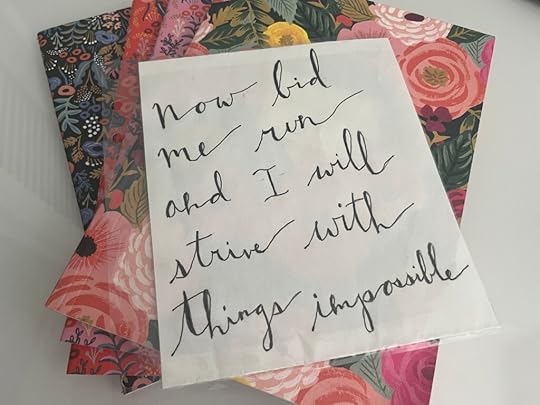 now bid
me run
and I will
strive with
things impossible